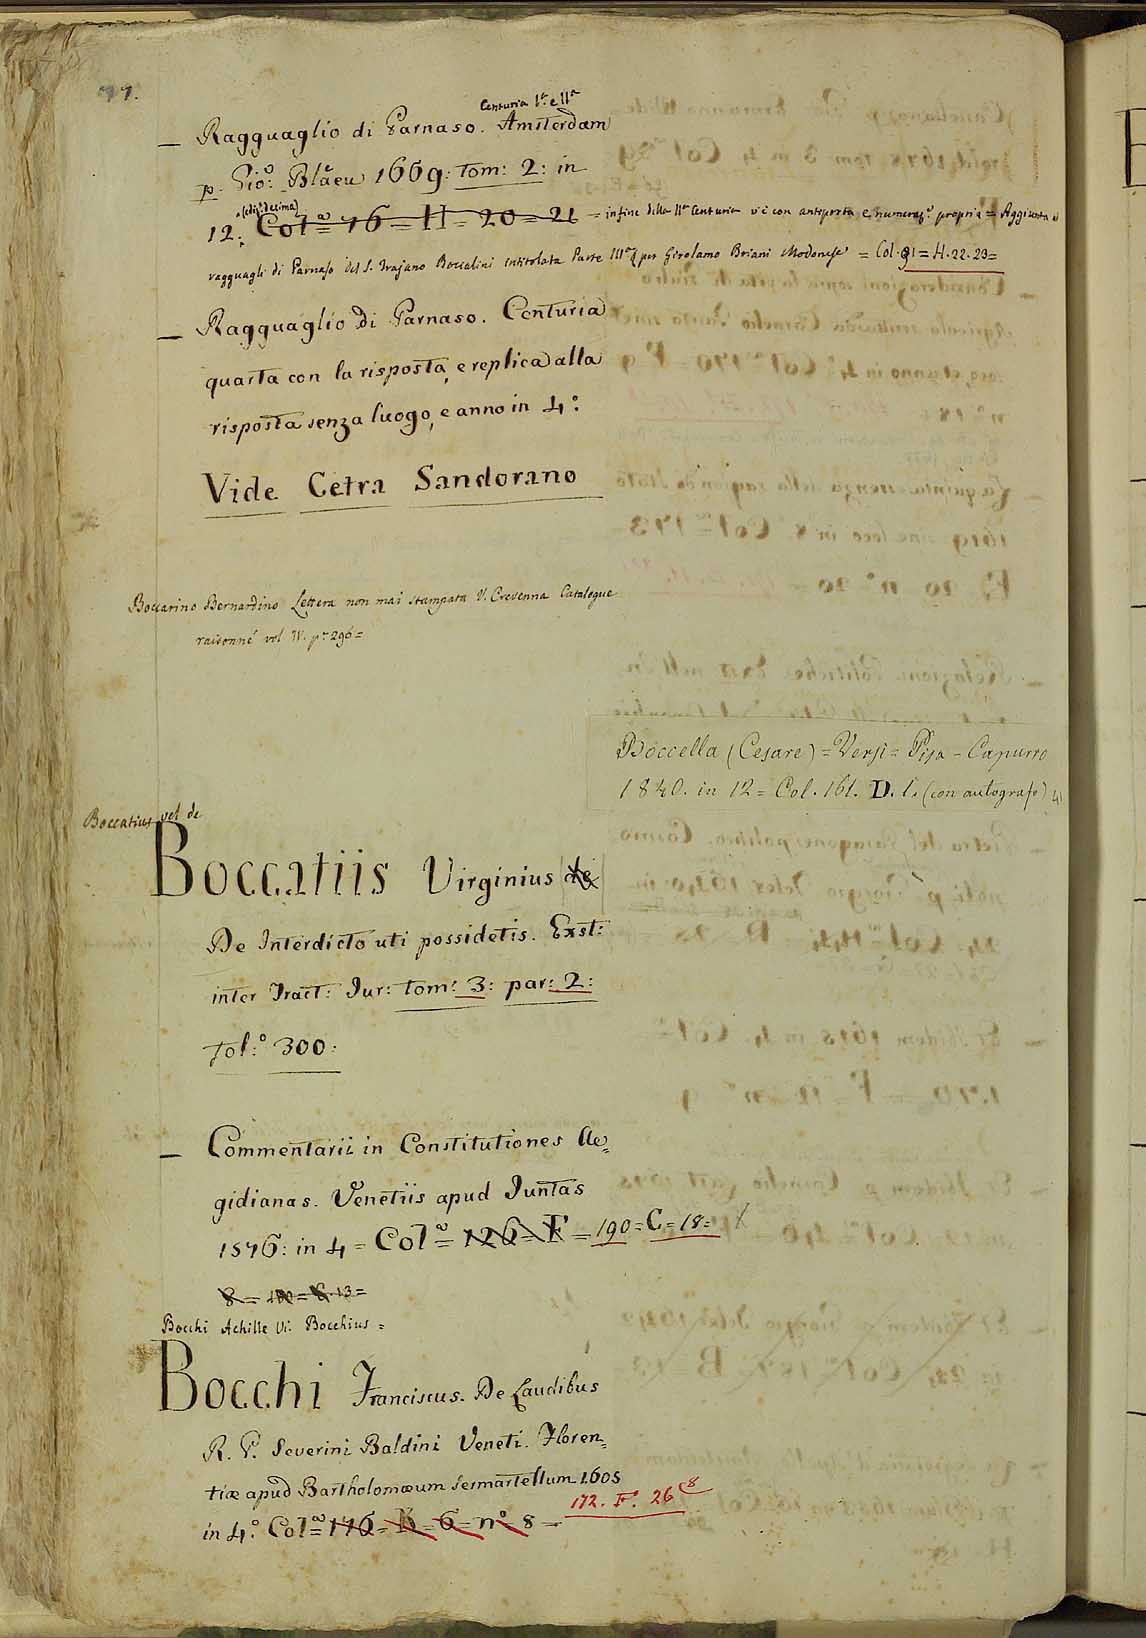 77.
Centuria Iª e IIª
— Ragguaglio di Parnaso. Amsterdam
p. Gio: Blaeu 1669: tom: 2: in
(ediz. decima)
12: Colª 76 = H = 20 = 21 = in fine della IIª Centuria vi è con anteporta e numeraz.e propria = Aggiunta ai
ragguagli di Parnaso del S. Trajano Boccalini intitolata Parte IIIª per Girolamo Briani Modonese = Col. 91 = H. 22. 23 =
— Ragguaglio di Parnaso. Centuria
quarta con la risposta, e replica alla
risposta senza luogo, e anno in 4.º
Vide Cetra Sandorano
Boccarino Bernardino Lettera non mai stampata V. Crevenna Catalogue
raisonné vol. IV. p. 296 =
Boccella (Cesare) = Versi = Pisa - Capurro
1840. in 12 = Col. 161. D. 1. (con autografo)
Boccatius vel de
Boccatiis Virginius de
De Interdicto uti possidetis. Exst:
inter Tract: Jur: tom: 3: par: 2:
fol:º 300:
— Commentarii in Constitutiones Ae=
gidianas. Venetiis apud Juntas
1576: in 4 = Colª = 126 = F = 190 = C = 18 =
8 = 190 = C. 13 =
Bocchi Achille Vi: Bocchius =
Bocchi Franciscus. De Laudibus
R. P. Severini Baldini Veneti. Floren=
tiæ apud Bartholomæum Sermartellum 1605
in 4.º Colª 176 = B = 6 = nº 8 =
172. F. 26 8